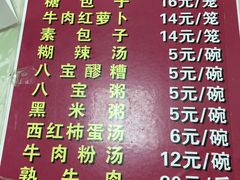 糖包子 16元/笼
牛肉红萝卜 14元/笼
素包子 14元/笼
糊辣汤 5元/碗
八宝醪糟 5元/碗
八宝粥 5元/碗
黑米粥 5元/碗
西红柿蛋汤 6元/碗
牛肉粉汤 12元/碗
熟牛肉